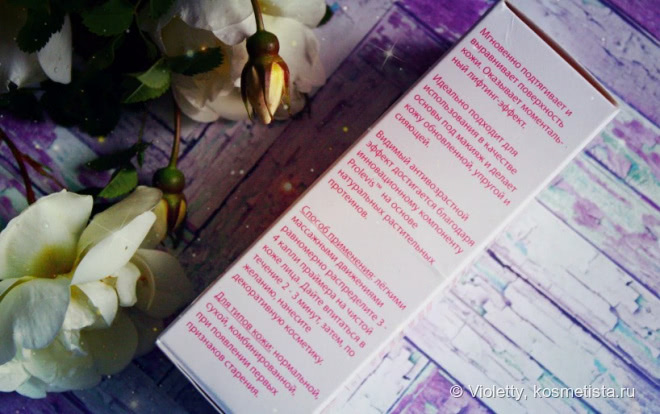 Мгновенно подтягивает и
выравнивает поверхность
кожи. Оказывает моменталь-
ный лифтинг-эффект.
Идеально подходит для
использования в качестве
основы под макияж и делает
кожу обновленной, упругой и
сияющей.
Видимый антивозрастной
эффект достигается благодаря
инновационному компоненту
Prolevis ® на основе
натуральных растительных
протеинов.
Способ применения: лёгкими
массажными движениями
равномерно распределите 3 -
4 капли праймера на чистой
коже лица. Дайте впитаться в
течение 2 - 3 минут, затем, по
желанию, нанесите
декоративную косметику.
Для типов кожи: нормальной,
сухой, комбинированной,
при появлении первых
признаков старения.
© Violetty, kosmetista.ru